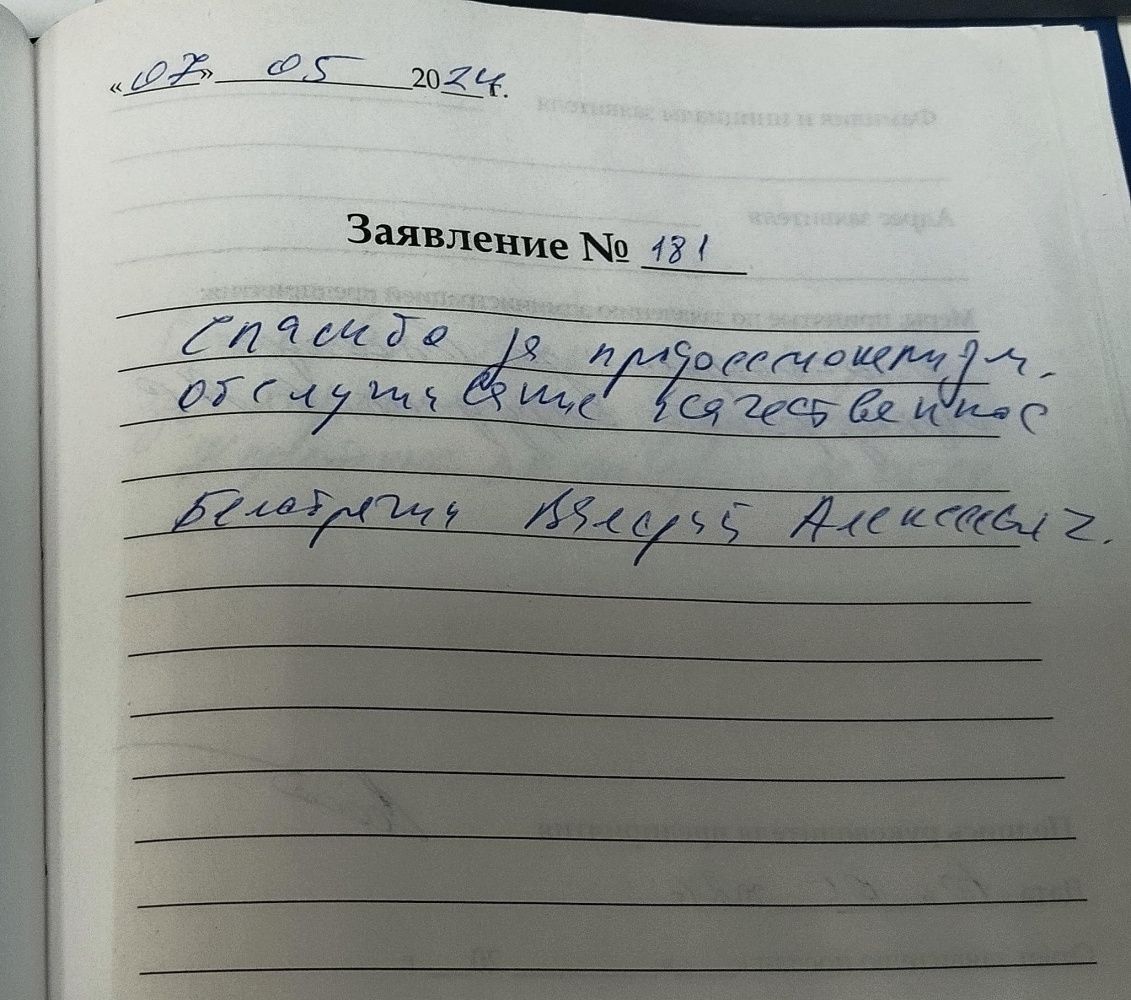 «07» 05 2024 г.
Заявление № 181
Спасибо за профессионализм.
обслуживание качественное
Валерий Алексеевич.